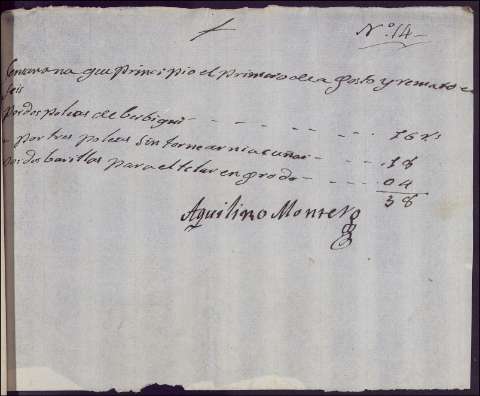 No. 14
Semana que principio el primero de agosto y remato en
seis
por dos poleas de berbiqui 16 rs
por tres poleas sin tornear ni acuñar 18
por dos barillas para el telar en grodo 04
38
Aquilino Montero